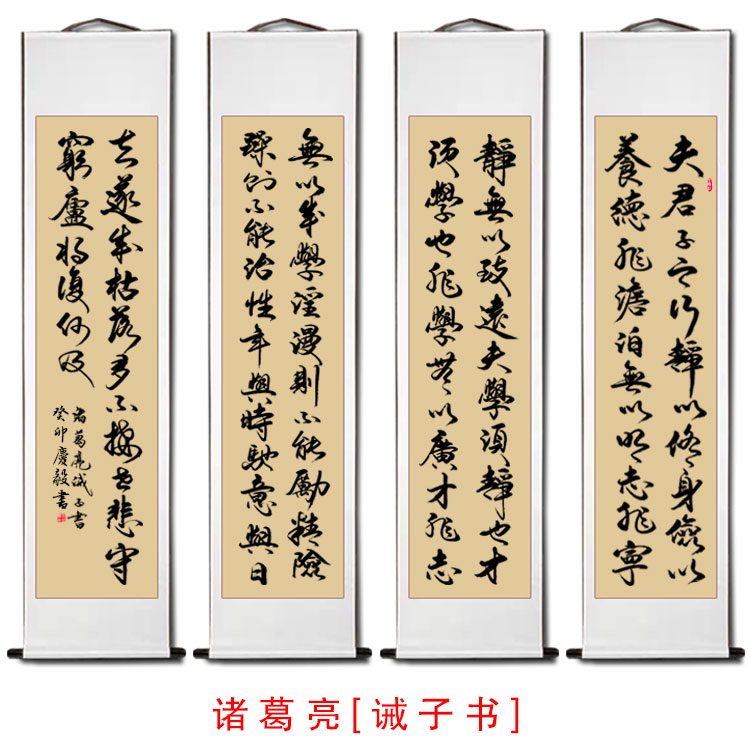 夫君子之行靜以修身儉以
養德非澹泊無以明志非寧
靜無以致遠夫學須靜也才
須學也非學無以廣才非志
無以成學淫漫則不能勵精險
躁則不能治性年與時馳意與日
去遂成枯落多不接世悲守
窮廬將復何及
諸葛亮誡子書
癸卯慶毅書
诸葛亮[诫子书]